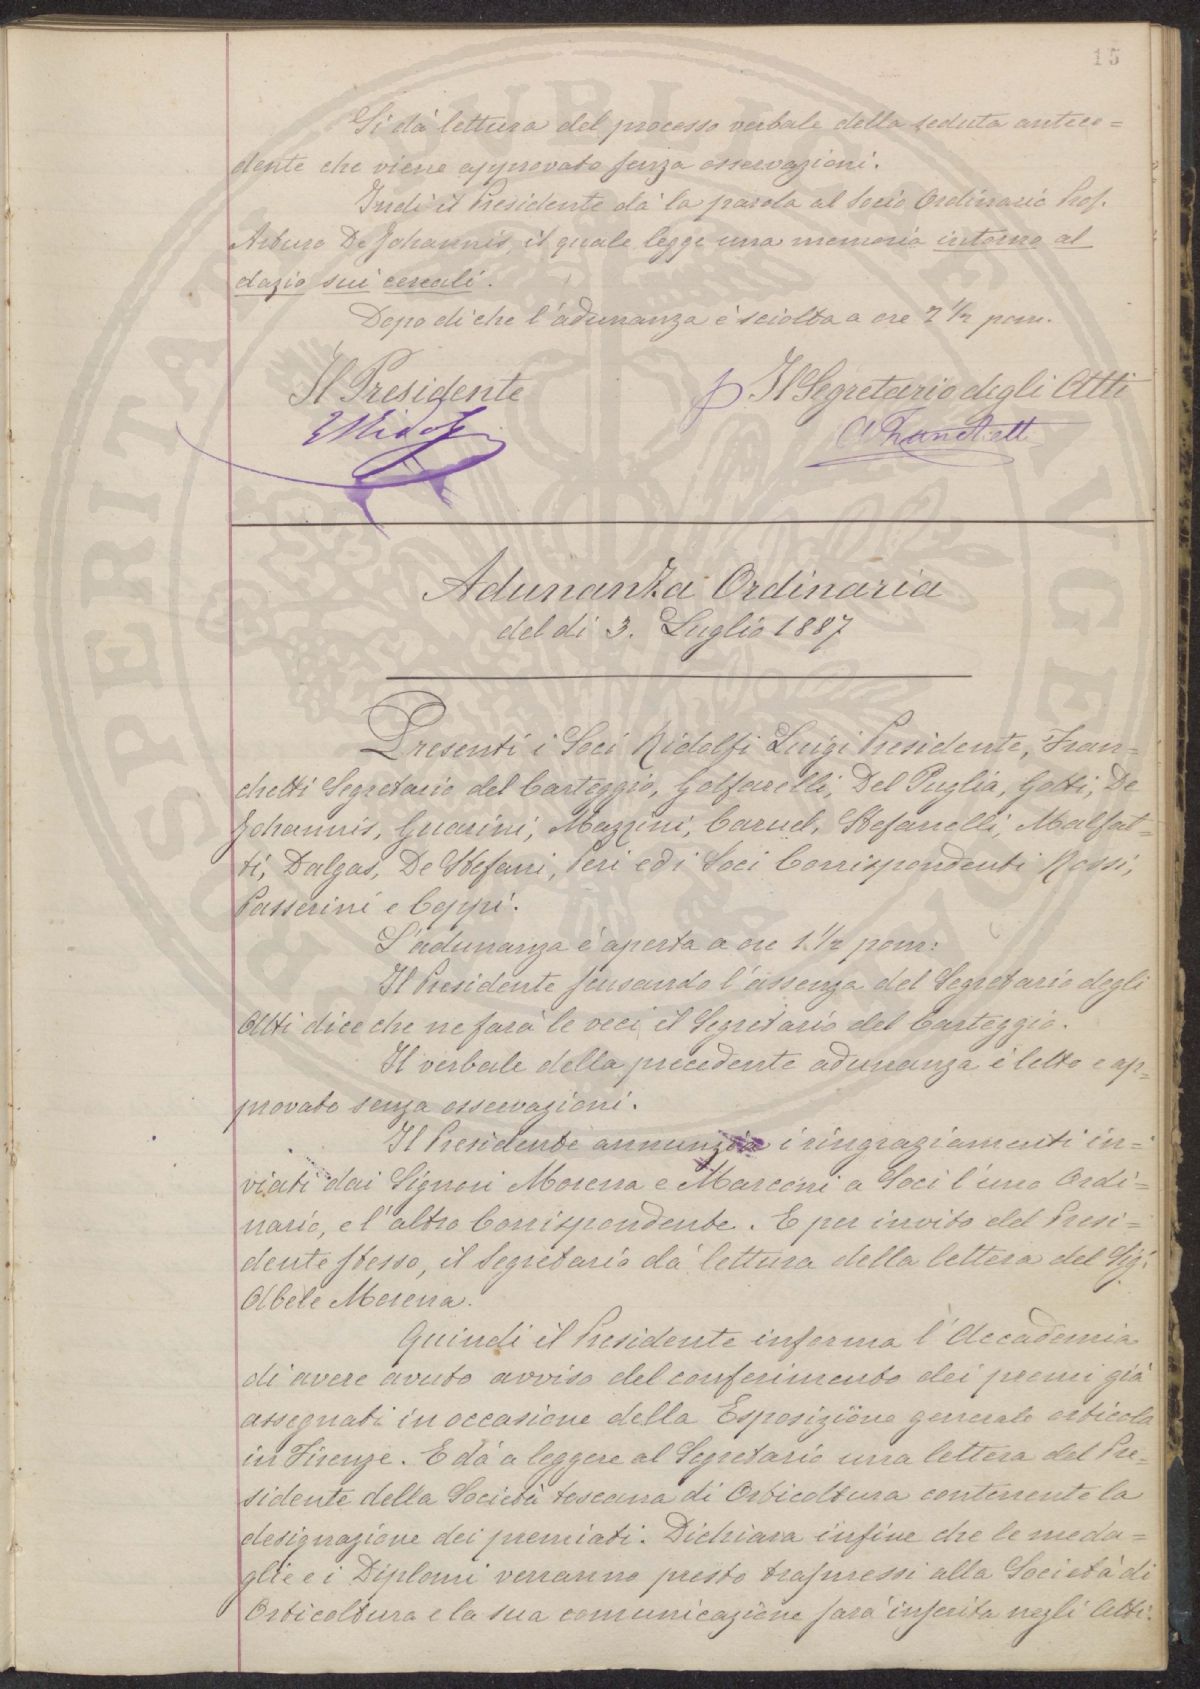 15
Si dà lettura del processo verbale della seduta antece=
dente che viene approvato senza osservazioni.
Indi il Presidente dà la parola al Socio Ordinario Prof.
Arturo De Johannis, il quale legge una memoria intorno al
dazio sui cereali.
Dopo di che l'adunanza è sciolta a ore 2 1/2 pom.
Il Presidente
Il Segretario degli Atti
LRidolfi
A Franchetti
Adunanza Ordinaria
del dì 3. Luglio 1887
Presenti i Soci Ridolfi Luigi Presidente, Fran=
chetti Segretario del Carteggio, Golfarelli, Del Puglia, Gotti, De
Johannis, Guarini, Mazzini, Caruel, Stefanelli, Malfat=
ti, Dalgas, De Stefani, Peri ed i Soci Corrispondenti Rossi,
Passerini e Ceppi.
L'adunanza è aperta a ore 1. 1/2 pom:
Il Presidente scusando l'assenza del Segretario degli
Atti dice che ne farà le veci il Segretario del Carteggio.
Il verbale della precedente adunanza è letto e ap=
provato senza osservazioni.
Il Presidente annunzia i ringraziamenti in=
viati dai Signori Morena e Marconi a Soci l'uno Ordi=
nario, e l'altro Corrispondente. E per invito del Presi=
dente stesso, il Segretario dà lettura della lettera del Sig:
Abele Morena.
Quindi il Presidente informa l'Accademia
di avere avuto avviso del conferimento dei premi già
assegnati in occasione della Esposizione generale orticola
in Firenze. E dà a leggere al Segretario una lettera del Pre=
sidente della Società toscana di Orticoltura contenente la
designazione dei premiati. Dichiara infine che le meda=
glie e i Diplomi verranno presto trasmessi alla Società di
Orticoltura e la sua comunicazione sarà inserita negli Atti.
PROSPERITATI PUBLICAE AUGENDAE